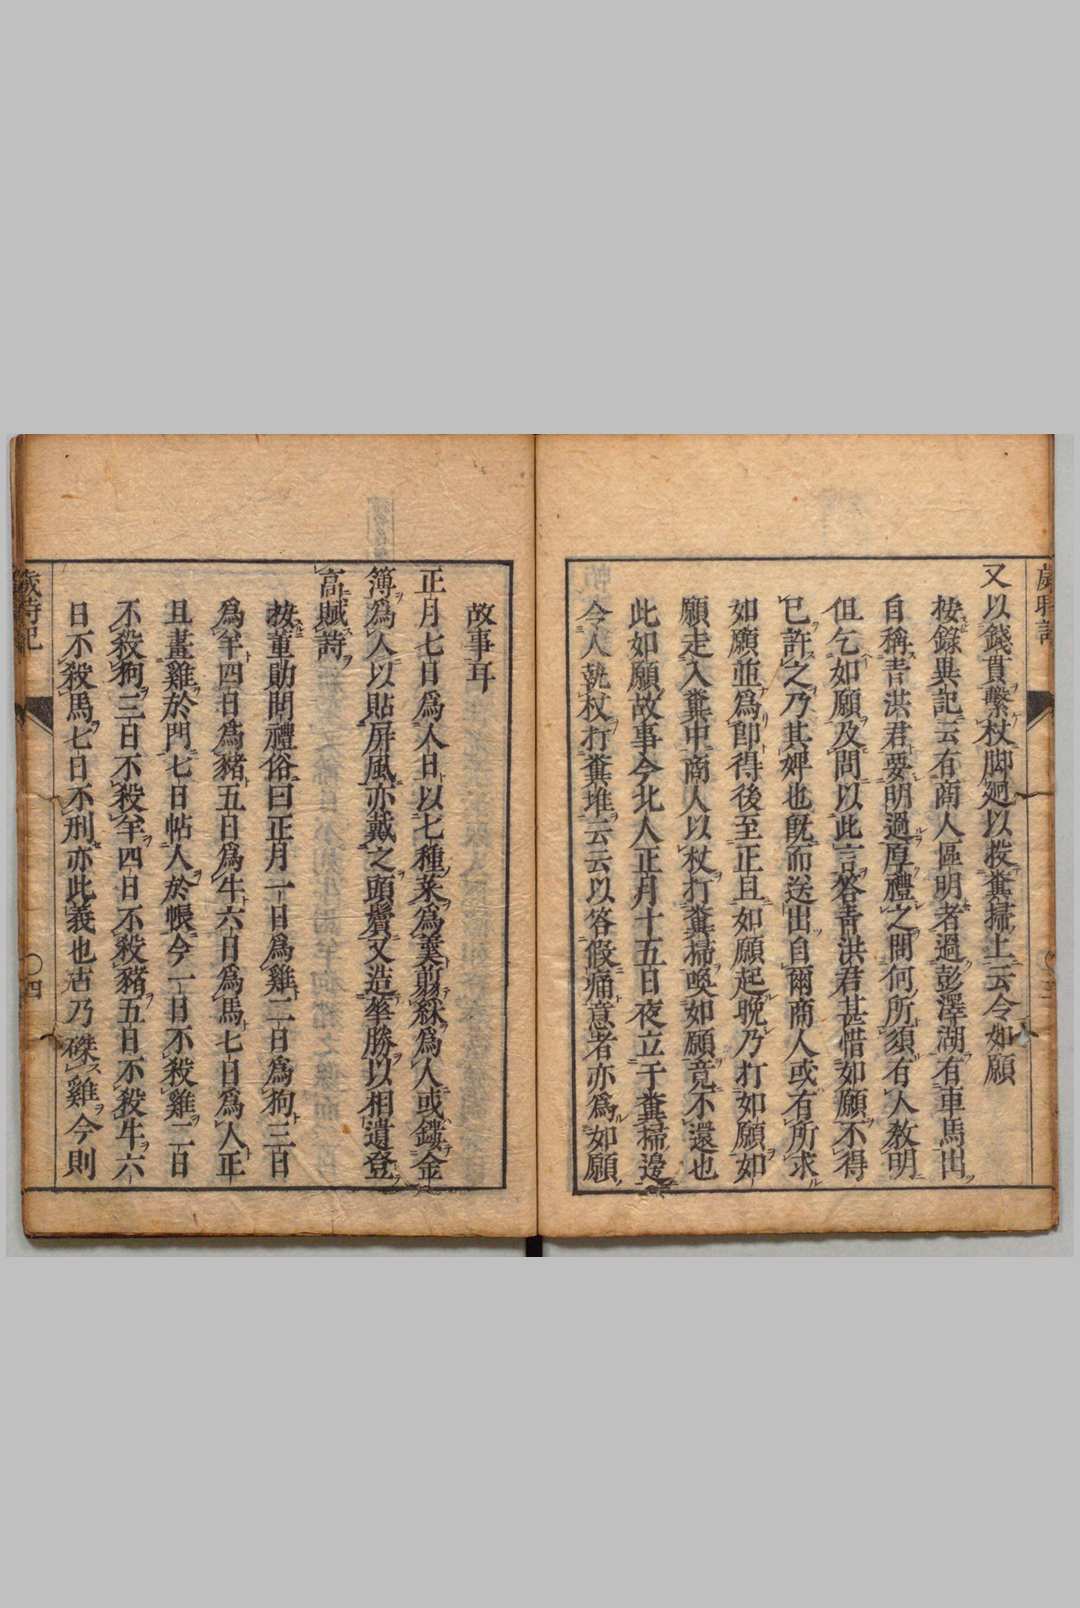 又以錢貫繫杖脚廻以投糞掃上云令如願
按錄異記云有商人區明者過彭澤湖有車馬出
自稱靑洪君要明過厚禮之問何所須有人教明
但乞如願及問以此言答靑洪君甚惜如願不得
已許之乃其婢也旣而送出自爾商人或有所求
如願並爲卽得後至正旦如願起晩乃打如願如
願走入糞中商人以杖打糞掃喚如願竟不還也
此如願故事今北人正月十五日夜立于糞掃邊
令人執杖打糞堆云云以答假痛意者亦爲如願
故事耳
正月七日爲人日以七種菜爲羹翦綵爲人或鏤金
簿爲人以貼屏風亦戴之頭鬢又造華勝以相遺登
高賦詩
按董勛問禮俗曰正月一日爲雞二日爲狗三日
爲羊四日爲豬五日爲牛六日爲馬七日爲人正
旦畫雞於門七日帖人於帳今一日不殺雞二日
不殺狗三日不殺羊四日不殺豬五日不殺牛六
日不殺馬七日不刑亦此義也古乃磔雞今則
歲時記
〇四